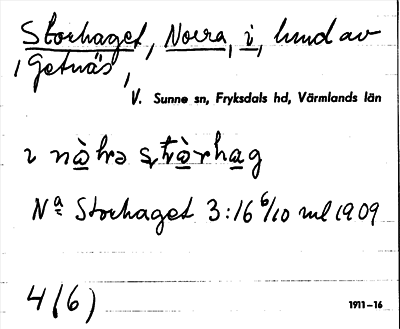 Storhaget, Norra, i, lund av
, Getnäs,
V. Sunne sn, Fryksdals hd, Värmlands län
ı nà̱hrə
Nª Storhaget 3:16 6/10 mtl 1909
4(6)
1911–16